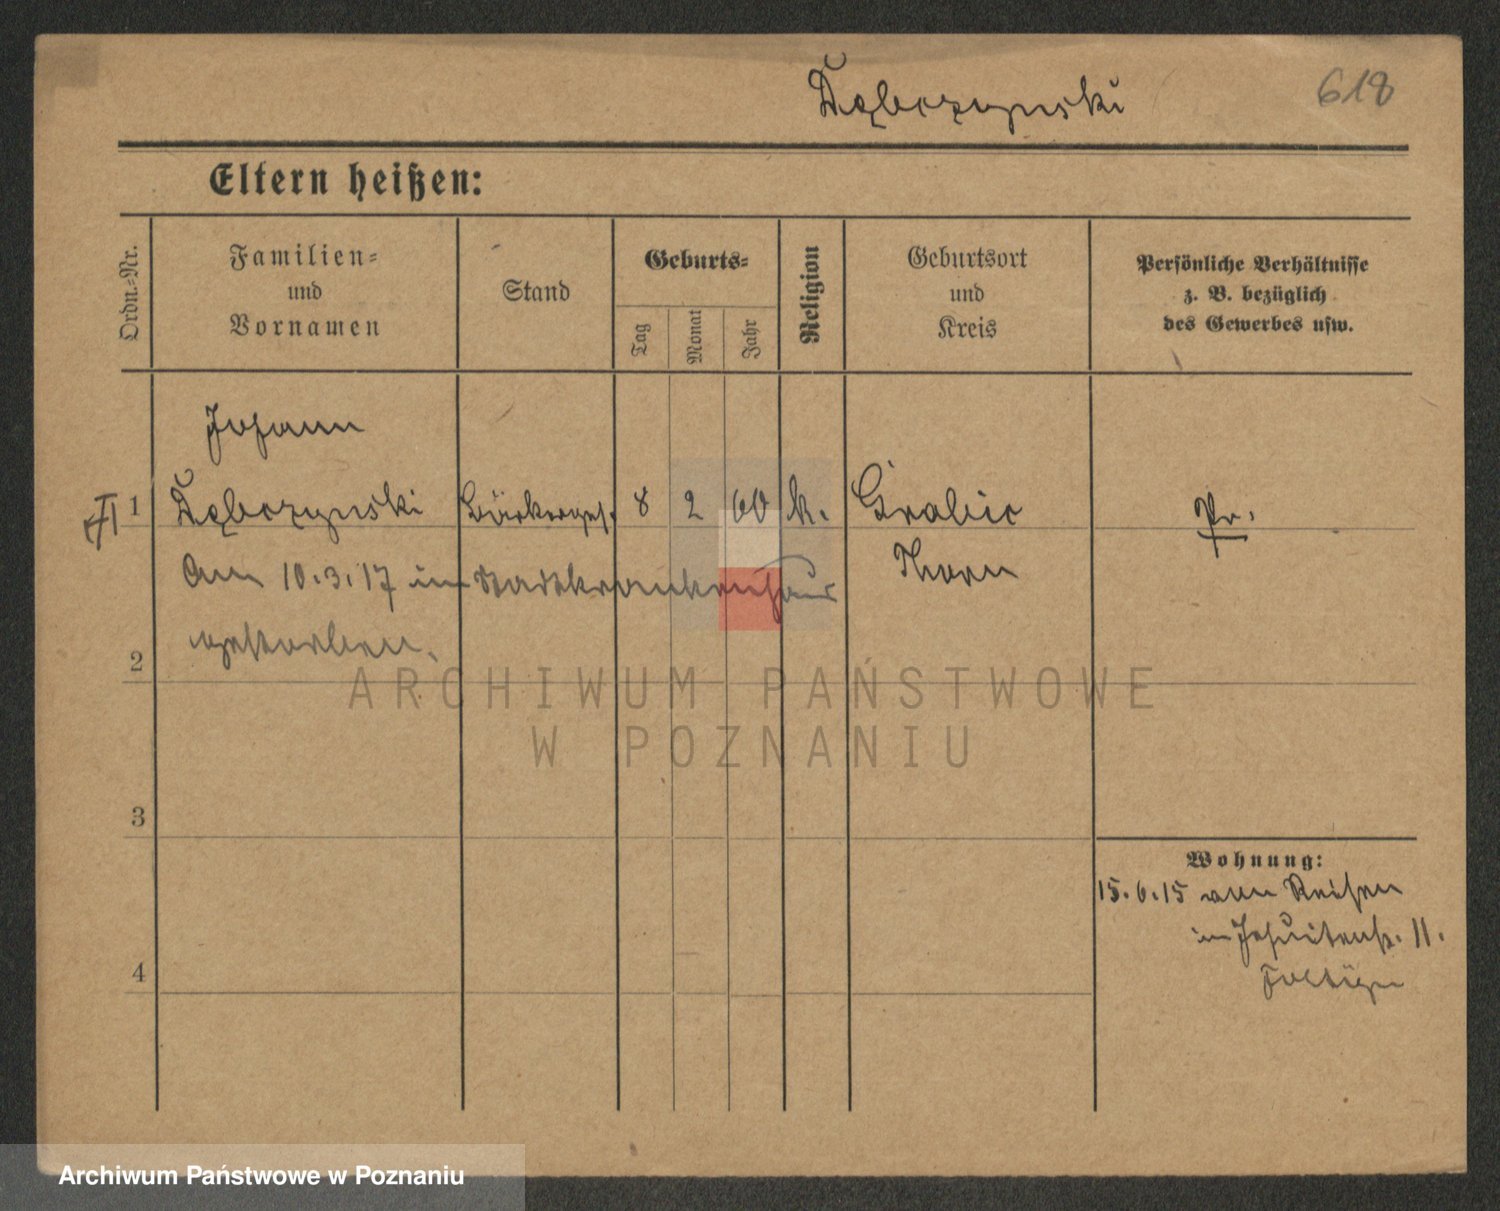 Dąbczynski
618
Eltern heißen:
Ordn.-Nr.
Familien-
und
Vornamen
Stand
Geburts-
Tag
Monat
Jahr
Religion
Geburtsort
und
Kreis
Persönliche Verhältnisse
z. B. bezüglich
des Gewerbes usw.
Johann
1 Dąbczynski Bäckerges. 8 2 60 k. Grabie Pr.
Thorn
Am 10.3.17 im Stadtkrankenhaus
gestorben.
2
3
4
Wohnung:
15.6.15 von Reisen
in Jesuitenstr. 11.
ARCHIWUM PAŃSTWOWE
W POZNANIU
Archiwum Państwowe w Poznaniu